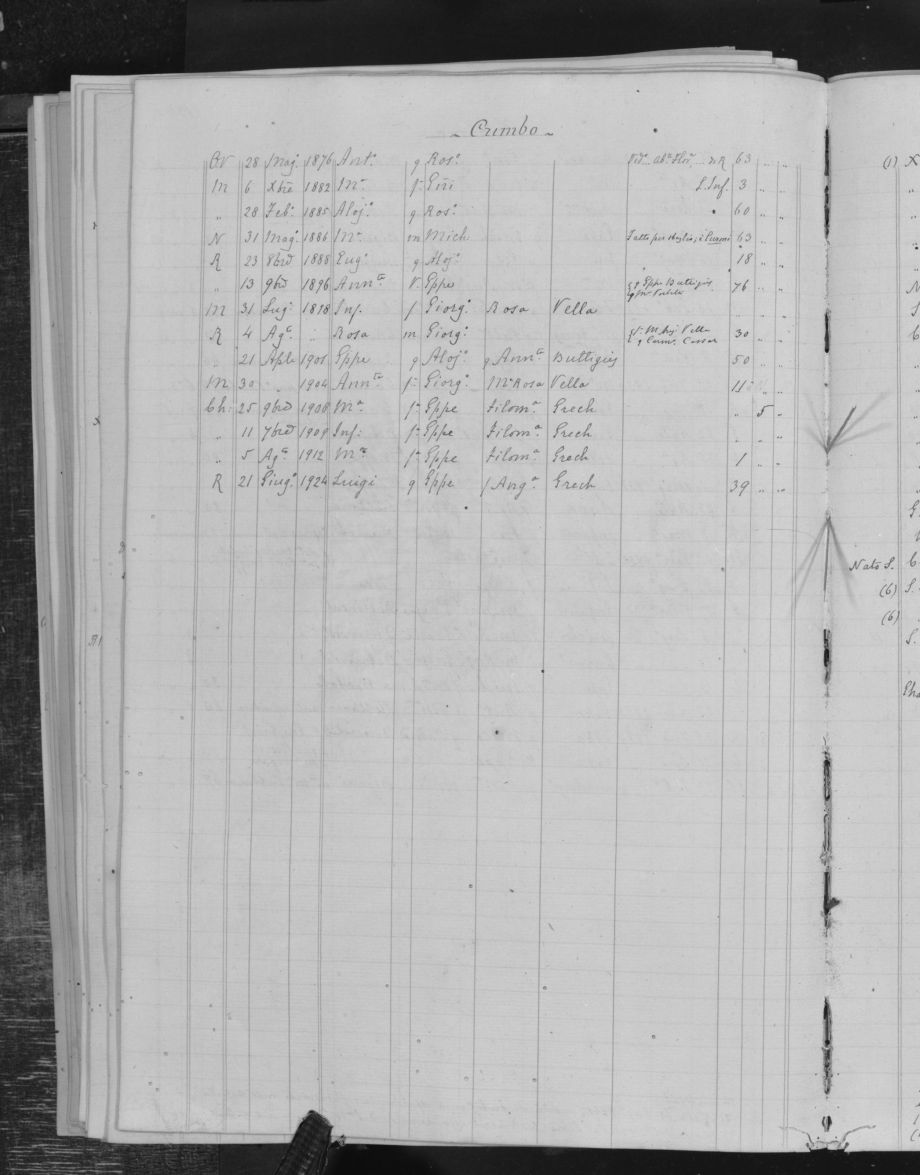 Cumbo
28 Maj. 1876 Ant.° q Ros.° 63 " "
M 6 Xbre 1882 M.ª f. S. Inf. 3 " "
" 28 Feb. 1885 Aloj.° q Ros.° 60 " "
N 31 Mag.° 1886 M.ª m Mich 63 " "
R 23 8bre 1888 Eug.° q Aloj.° 18 " "
" 13 9bre 1896 Ann.ta V. Gppe q Gppe Buttigieg 76 " "
M 31 Lug. 1898 Inf. f Giorg.° Rosa Vella
R 4 Ag.° " Rosa m Giorg.° Vella q Carm. Cassar 30 " "
" 21 Aple 1901 Gppe q Aloj.° q Ann.ta Buttigieg 50 " "
M 30 " 1904 Ann.ta f. Giorg.° M.ª Rosa Vella
Ch: 25 9bre 1908 M.ª f. Gppe Filom.ª Grech " 5 "
" 11 7bre 1909 Inf: f. Gppe Filom.ª Grech " " "
" 5 Ag.° 1912 M.ª f. Gppe Filom.ª Grech 1 " "
R 21 Giug.° 1924 Luigi q Gppe f Ang.ª Grech 39 " "
(1)
Nato S.
(6) S.
(6)
S.